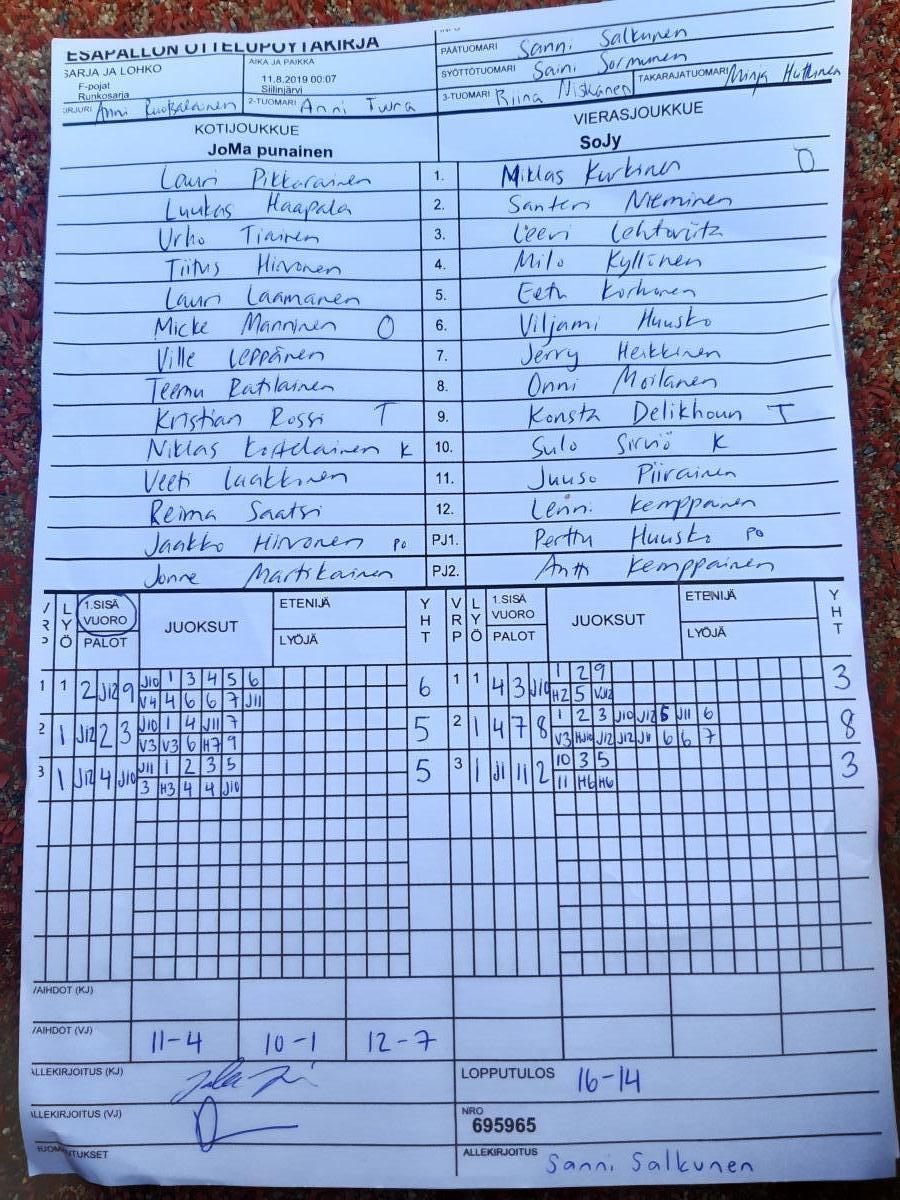 ESÄPALLON OTTELUPÖYTÄKIRJA
SARJA JA LOHKO
F-pojat
Runkosarja
AIKA JA PAIKKA
11.8.2019 00:07
Siilinjärvi
PÄÄTUOMARI Sanni Salkunen
SYÖTTÖTUOMARI Saini Sormunen
KIRJURI Anni Ruokolainen 2-TUOMARI Anni Tuura 3-TUOMARI Riina Niskanen TAKARAJATUOMARI Minja Huttunen
KOTIJOUKKUE VIERASJOUKKUE
JoMa punainen SoJy
Lauri Pikkarainen 1. Miklas Kurkinen O
Luukas Haapala 2. Santeri Nieminen
Urho Tiainen 3. Leevi
Tiitus Hirvonen 4. Milo Kyllönen
Lauri Laamanen 5. Eetu Korhonen
Micke Manninen O 6. Viljami Huusko
Ville Leppänen 7. Jerry Heikkinen
Teemu Ratilainen 8. Onni Moilanen
Kristian Rossi T 9. Konsta Delikhoun T
Niklas K 10. Sulo Sirviö K
Veeti Laakkonen 11. Juuso Piirainen
Reima Saatsi 12. Lenni Kemppainen
Jaakko Hirvonen PO PJ1. Perttu Huusko PO
Jonne Martiskainen PJ2. Antti Kemppainen
VRP LYÖ 1.SISÄ VUORO PALOT JUOKSUT ETENIJÄ LYÖJÄ YHT VRP LYÖ 1.SISÄ VUORO PALOT JUOKSUT ETENIJÄ LYÖJÄ YHT
1 1 2 J12 9 J10 1 3 4 5 6 6 1 1 4 3 J10 1 2 9 3
V4 4 6 6 7 J11 H2 5 VJ12
2 1 J12 2 3 J10 1 4 J11 7 5 2 1 4 7 8 1 2 3 J10 J12 5 J11 6 8
V3 V3 6 H7 9 V3 HJ10 J12 J12 J11 6 6 7
3 1 J12 4 J10 J11 1 2 3 5 5 3 1 J11 11 2 10 3 5 3
3 H3 4 4 J10 11 H6 H6
VAIHDOT (KJ)
VAIHDOT (VJ) 11-4 10-1 12-7
ALLEKIRJOITUS (KJ) LOPPUTULOS 16-14
ALLEKIRJOITUS (VJ) NRO
695965
HUOMAUTUKSET ALLEKIRJOITUS Sanni Salkunen